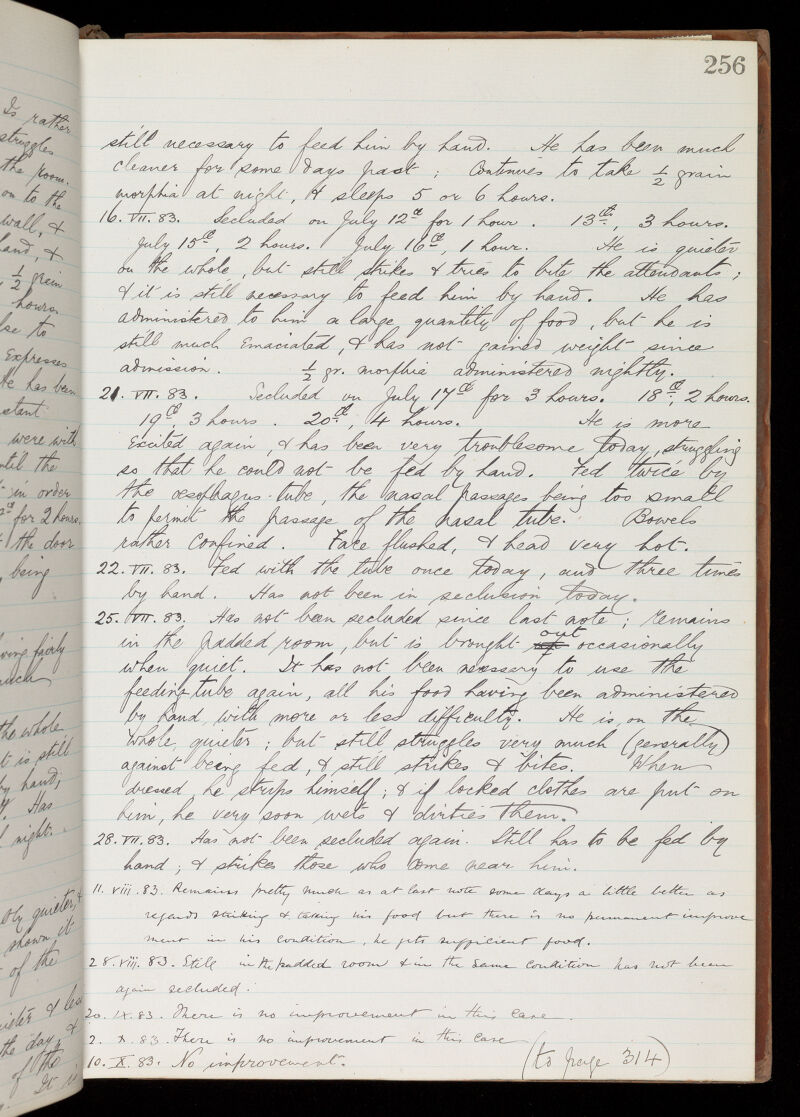 256
still necessary to feed him by hand. He has been much
cleaner for some days past; Continues to take ½ grain
morphia at night, & sleeps 5 or 6 hours.
16. VII. 83. Secluded on July 12th for 1 hour. 13th, 3 hours.
July 15th, 2 hours. July 16th, 1 hour. He is quieter
on the whole, but still strikes & tries to bite the attendants;
& it is still necessary to feed him by hand. He has
administered to him a large quantity of food, but he is
still much emaciated, & has not gained weight since
admission. ½ gr. morphia administered nightly.
21. VII. 83. Secluded on July 17th for 3 hours. 18th, 2 hours.
19th, 3 hours. 20th, 4 hours. He is more
Excited again, & has been very troublesome today, struggling
so that he could not be fed by hand. Fed twice by
the œsophagus-tube, the nasal passages being too small
to permit the passage of the nasal tube. Bowels
rather confined. Face flushed, & head very hot.
22. VII. 83. Fed with the tube once today, and three times
by hand. Has not been in seclusion today.
25. VII. 83. Has not been secluded since last note; remains
in the padded room, but is brought out occasionally
when quiet. It has not been necessary to use the
feeding-tube again, all his food having been administered
by hand, with more or less difficulty. He is, on the
whole, quieter; but still struggles very much (generally)
against being fed, & still strikes & bites. When
dressed, he strips himself; & if locked clothes are put on
him, he very soon wets & dirties them.
28. VII. 83. Has not been secluded again. Still has to be fed by
hand; & strikes those who come near him.
11. VIII. 83. Remains pretty much as at last note some days a little better as
regards striking & taking his food but there is no permanent improve
ment in his condition, he gets sufficient food.
28. VIII. 83. Still in the padded room & in the same condition has not been
again secluded.
20. IX. 83. There is no improvement in this case.
2. X. 83. There is no improvement in this case
10. X. 83. No improvement. (to page 314)
Is rather
struggles
the room.
on to the
wall, &
hand, &
½ grain
hours.
Expresses
He has been
were with
until the
in order
for 2 hours.
the door
being
fairly
much
the whole
it is still
by hand;
Has
night.
quieter, &
shown, it
of the
quieter & less
the day, &
of the